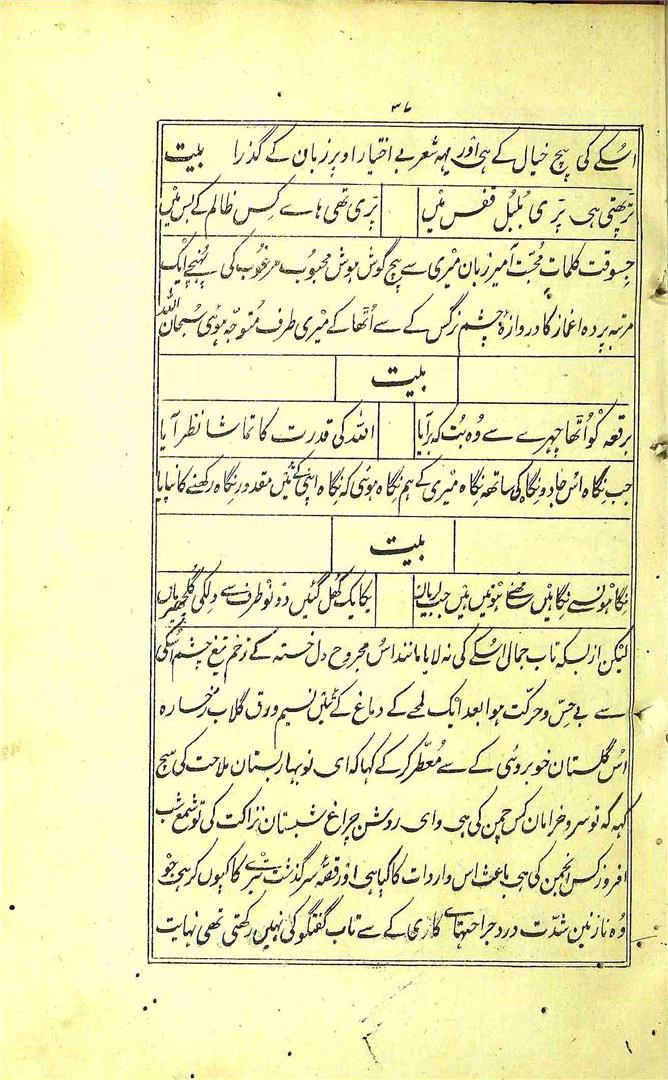 ۳۷
اسکے کی بیچ خیال کے ہی اور یہہ شعر بے اختیار اوپر زبان کے گذرا بیت
تڑپھتی ہی پری بُلبُل قفس میں پری تھی ہاے کِس ظالم کے بس میں
جسوقت کلمات محبّت آمیز زبان میری سے بیچ گوش ہوش محبوب مرغوب کی پُہنچے ایک
مرتبہ پردہ اغماز کا دروازۂ چشم نرگس کے سے اُٹھا کے میری طرف متوجّہ ہوئی سُبحان اللہ
بیت
برقعہ کو اُٹھا چہرے سے وُہ بُت کہ برآیا اللہ کی قدرت کا تماشا نظر آیا
جب نِگاہ اس جادو نِگاہ کی ساتھہ نِگاہ میری کے ہم نِگاہ ہوئی کہ نِگاہ اپنی کے تئیں مقدور نِگاہ رکھنے کا نپایا
بیت
نگاہونسے نِگاہیں سامنے ہوتیں ہیں جب لڑیاں یکایک کُھل گئیں دونو طرف سے دلکی گلجھڑیاں
لیکن ازبسکہ تاب جمال اسکے کی نہ لایا مانند اس مجروح دل خستہ کے زخم تیغ چشم اسکی
سے بے حِس و حرکت ہوا بعد ایک لمحے کے دماغ کے تئیں نسیم ورق گلاب رخسارہ
اس گلستان خوبروئی کے سے مُعطّر کر کے کہا کہ ای نوبہار بستان ملاحت کی سچ
کہہ کہ تو سرو خرامان کس چمن کی ہی وای روشن چراغ شبستان نزاکت کی تو شمع شب
افروز کس انجمن کی ہی باعث اس واردات کا کیا ہی اور قصّہ سرگذشت تیرے کا کیوں کر ہی جو
وُہ نازنین شدّت درد جراحتہاے کاری کے سے تاب گفتگو کی نہیں رکھتی تھی نہایت